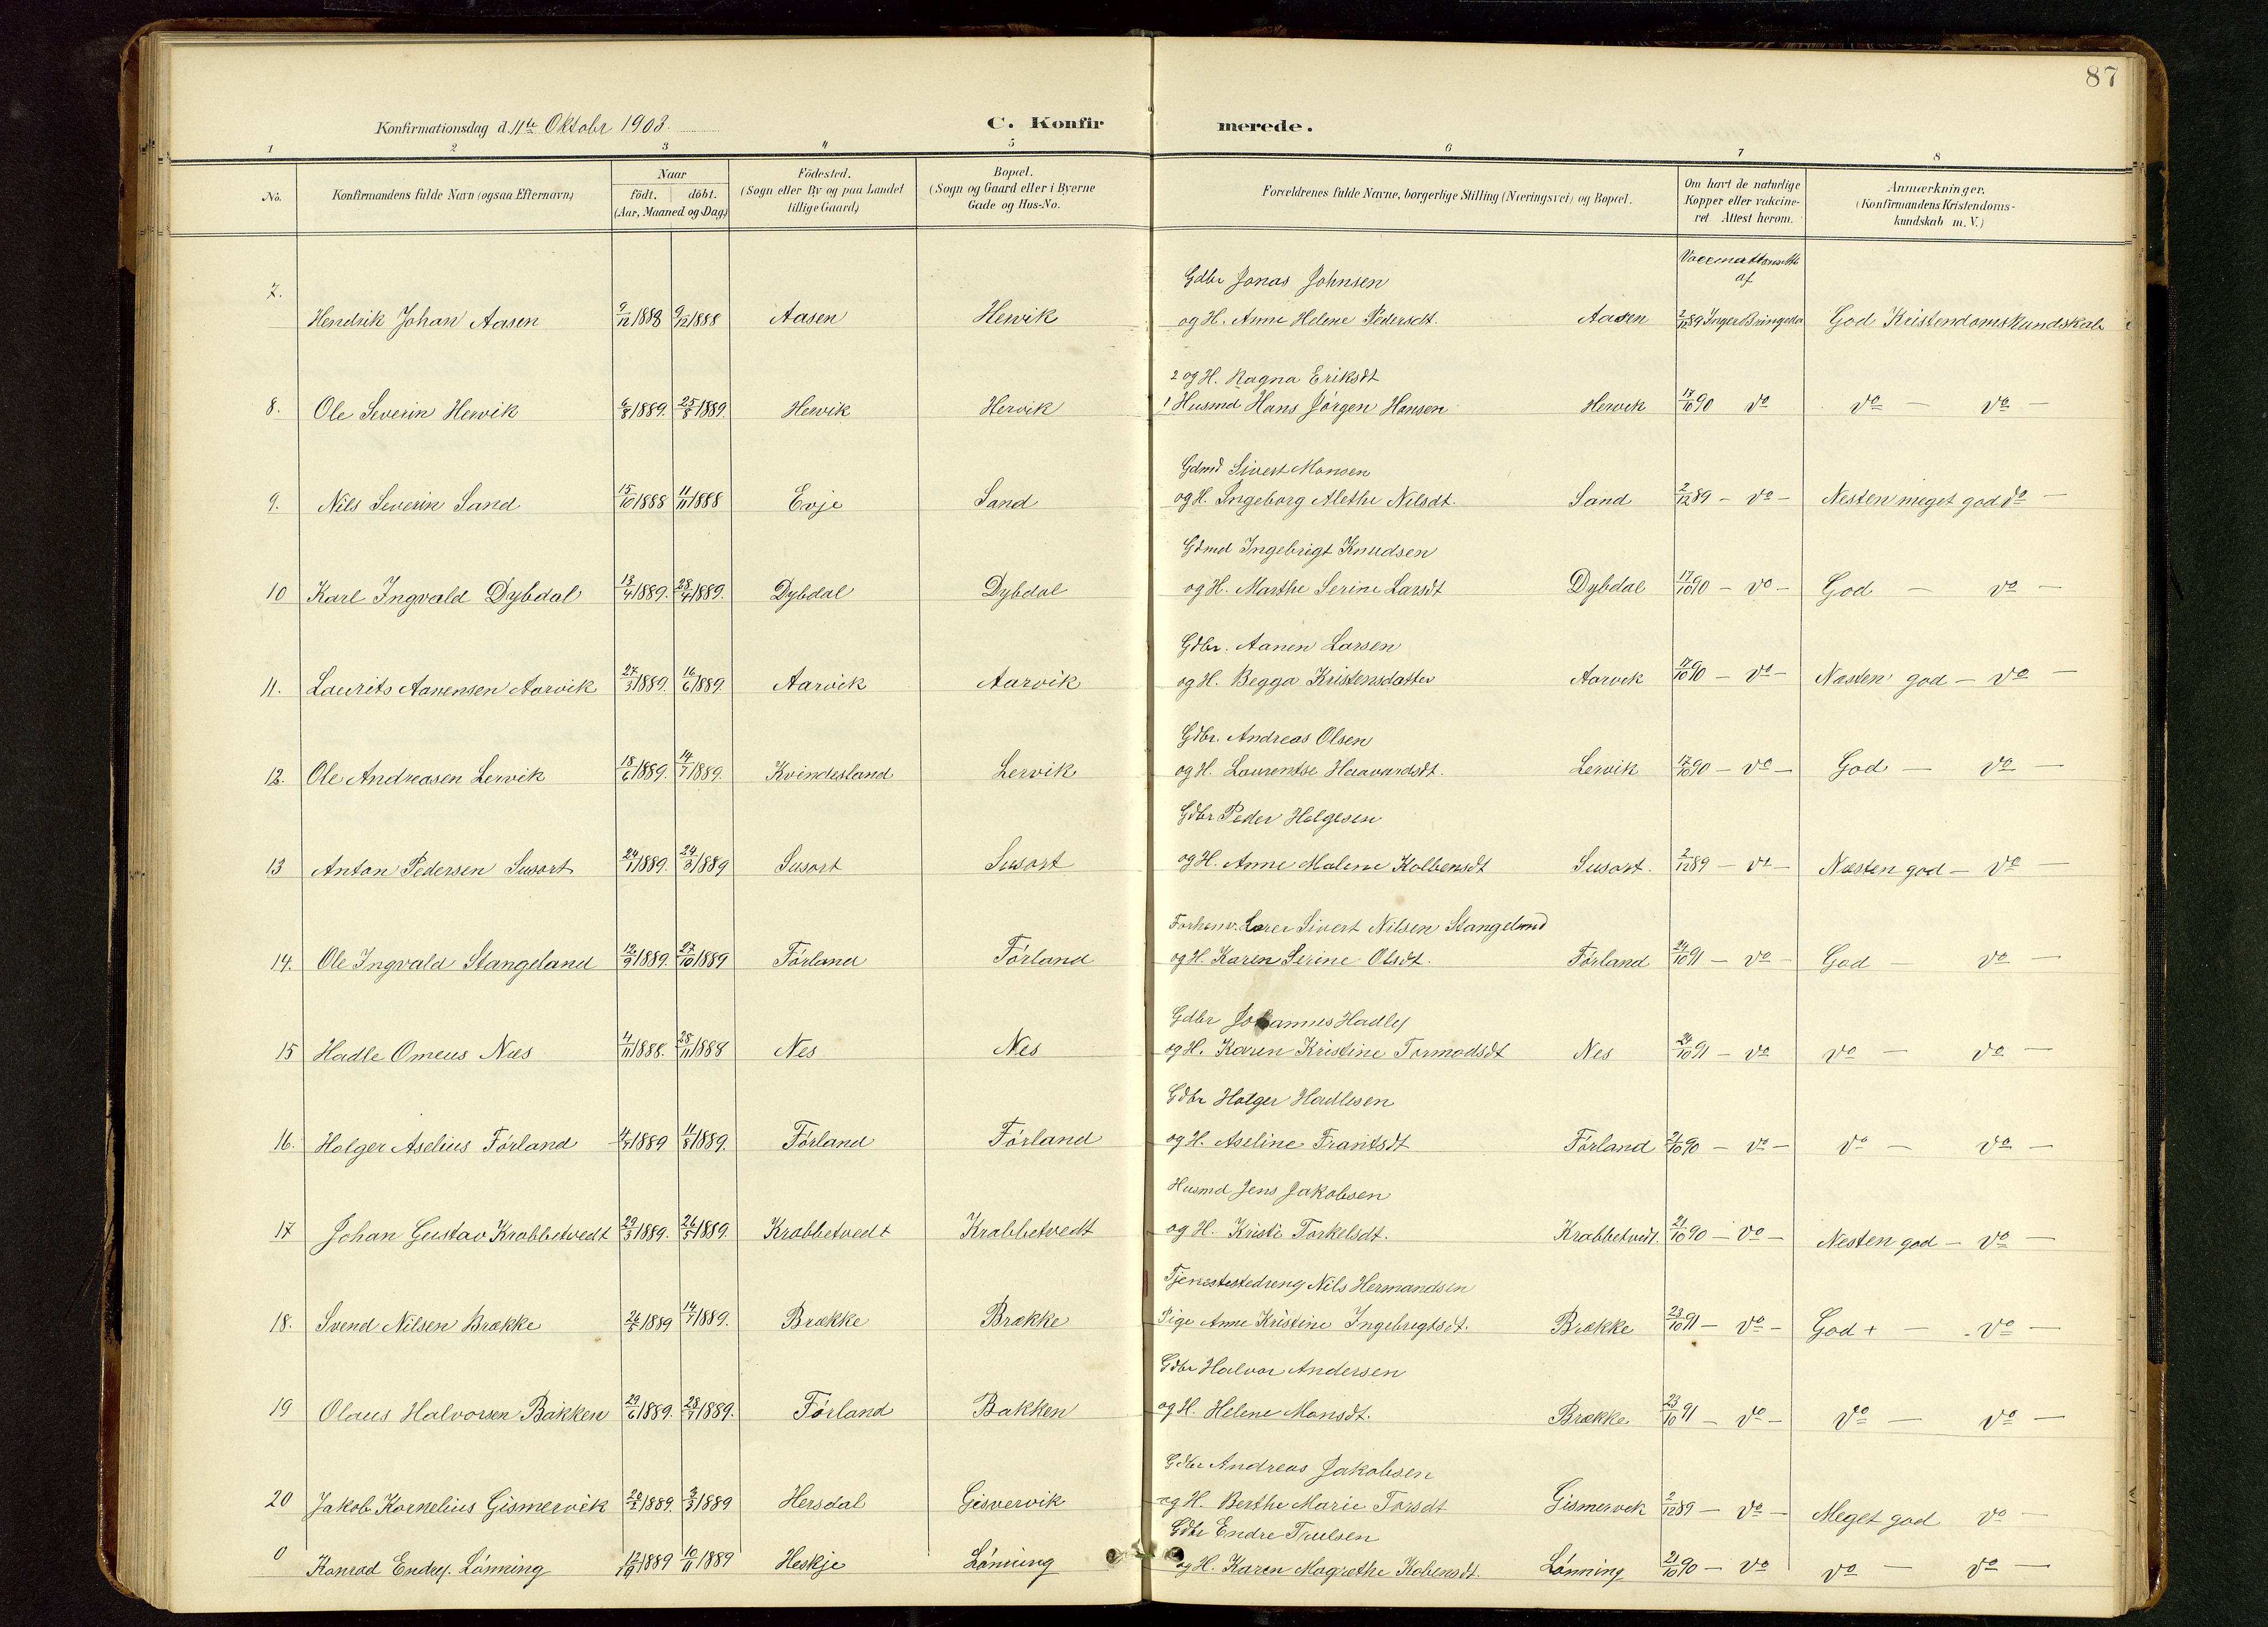 87
Konfirmationsdag d. 11te Oktobr 1903.
C. Konfirmerede.
1 2 3 4 5 6 7 8
No. Konfirmandens fulde Navn (ogsaa Efternavn) Naar født. døbt. (Aar, Maaned og Dag.) Fødested. (Sogn eller By og paa Landet tillige Gaard.) Bopæl. (Sogn og Gaard eller i Byerne Gade og Hus-No. Forældrenes fulde Navne, borgerlige Stilling (Næringsvei) og Bopæl. Om havt de naturlige Kopper eller vakcineret Attest herom. Anmærkninger. (Konfirmandens Kristendomskundskab m. V.)
Gdbr Jonas Johnsen
af
7. Hendrik Johan Aasen 9/12 1888 9/12 1888 Aasen Hervik og H. Anne Helene Pedersdt. Aasen 2/12 89 Inger Bringedal God Kristendomskundskab
2 og H. Ragna Eriksdt
8. Ole Severin Hervik 6/8 1889. 25/8 1889. Hervik Hervik 1 Husmd Hans Jørgen Hansen Hervik 17/10 90 do do — do —
Gdmd Sivert Monsen
9. Nils Severin Sand 15/10 1888 11/11 1888 Evje Sand og H. Ingeborg Alethe Nilsdt. Sand 2/12 89 — do — Nesten meget god do —
Gdmd Ingebrigt Knudsen
10 Karl Ingvald Dybdal 13/4 1889. 28/4 1889. Dybdal Dybdal og H. Marthe Serine Larsdt Dybdal 17/10 90 — do — God — do —
Gdbr. Aanen Larsen
11. Laurits Aanensen Aarvik 27/3 1889. 16/6 1889 Aarvik Aarvik og H. Begga Kristensdatter Aarvik 17/10 90 — do — Næsten god — do —
Gdbr. Andreas Olsen
12. Ole Andreasen Lervik 18/6 1889. 14/7 1889. Kvindesland Lervik og H. Laurentse Haavardsdt. Lervik 17/10 90 — do — God — do —
Gdbr Peder Helgesen
13 Anton Pedersen Susort 24/1 1889. 24/3 1889 Susort Susort og H. Anne Malene Kolbensdt Susort. 2/12 89 — do — Næsten god — do —
Forhenv. Lærer Sivert Nilsen Stangeland
14. Ole Ingvald Stangeland 12/9 1889. 27/10 1889 Førland Førland og H. Karen Serine Olsdt. Førland 24/10 91 — do — God — do —
Gdbr Johannes Hadles
15 Hadle Omeus Næs 4/11 1888. 25/11 1888 Nes Nes og H. Karen Kristine Tormodsdt Nes 24/10 91 — do do — do —
Gdbr Holger Hadlesen
16. Holger Aselius Førland 4/7 1889 11/8 1889. Førland Førland og H. Aseline Frantsdt Førland 21/10 90 — do — do — do —
Husmd Jens Jakobsen
17 Johan Gustav Krabbetvedt 29/3 1889. 26/5 1889. Krabbetvedt Krabbetvedt og H. Kristi Torkelsdt. Krabbetvedt. 21/10 90 — do — Nesten god — do —
Tjenestedreng Nils Hermandsen
18. Svend Nilsen Brække 26/5 1889 14/7 1889. Brække Brække Pige Anne Kristine Ingebregtsdt. Brække 23/10 91 — do — God + — do —
Gdbr Halvor Andersen
19 Olaus Halvorsen Bakken 29/6 1889. 28/7 1889. Førland Bakken og H. Helene Monsdt. Brække 23/10 91 — do — do — do —
Gdbr Andreas Jakobsen
20 Jakob Kornelius Gismervik 20/2 1889. 3/3 1889 Hersdal Gisvervik og H. Berthe Marie Torsdt Gismervik 2/12 89 — do — Meget god do —
Gdbr Endre Trulsen
0 Konrad Endres. Lønning 12/10 1889 10/11 1889 Heskje Lønning og H. Karen Magrethe Kolbensdt. Lønning 21/10 90 — do do — do —